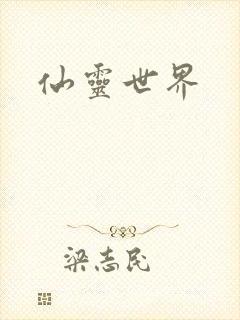 仙靈世界
梁志民